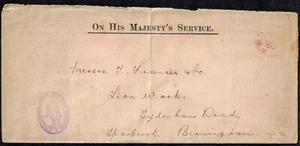 On His Majesty's Service.
Messrs T. Francis & Co.
Lion Works.
Sydenham Road,
Sparbrook Birmingham.